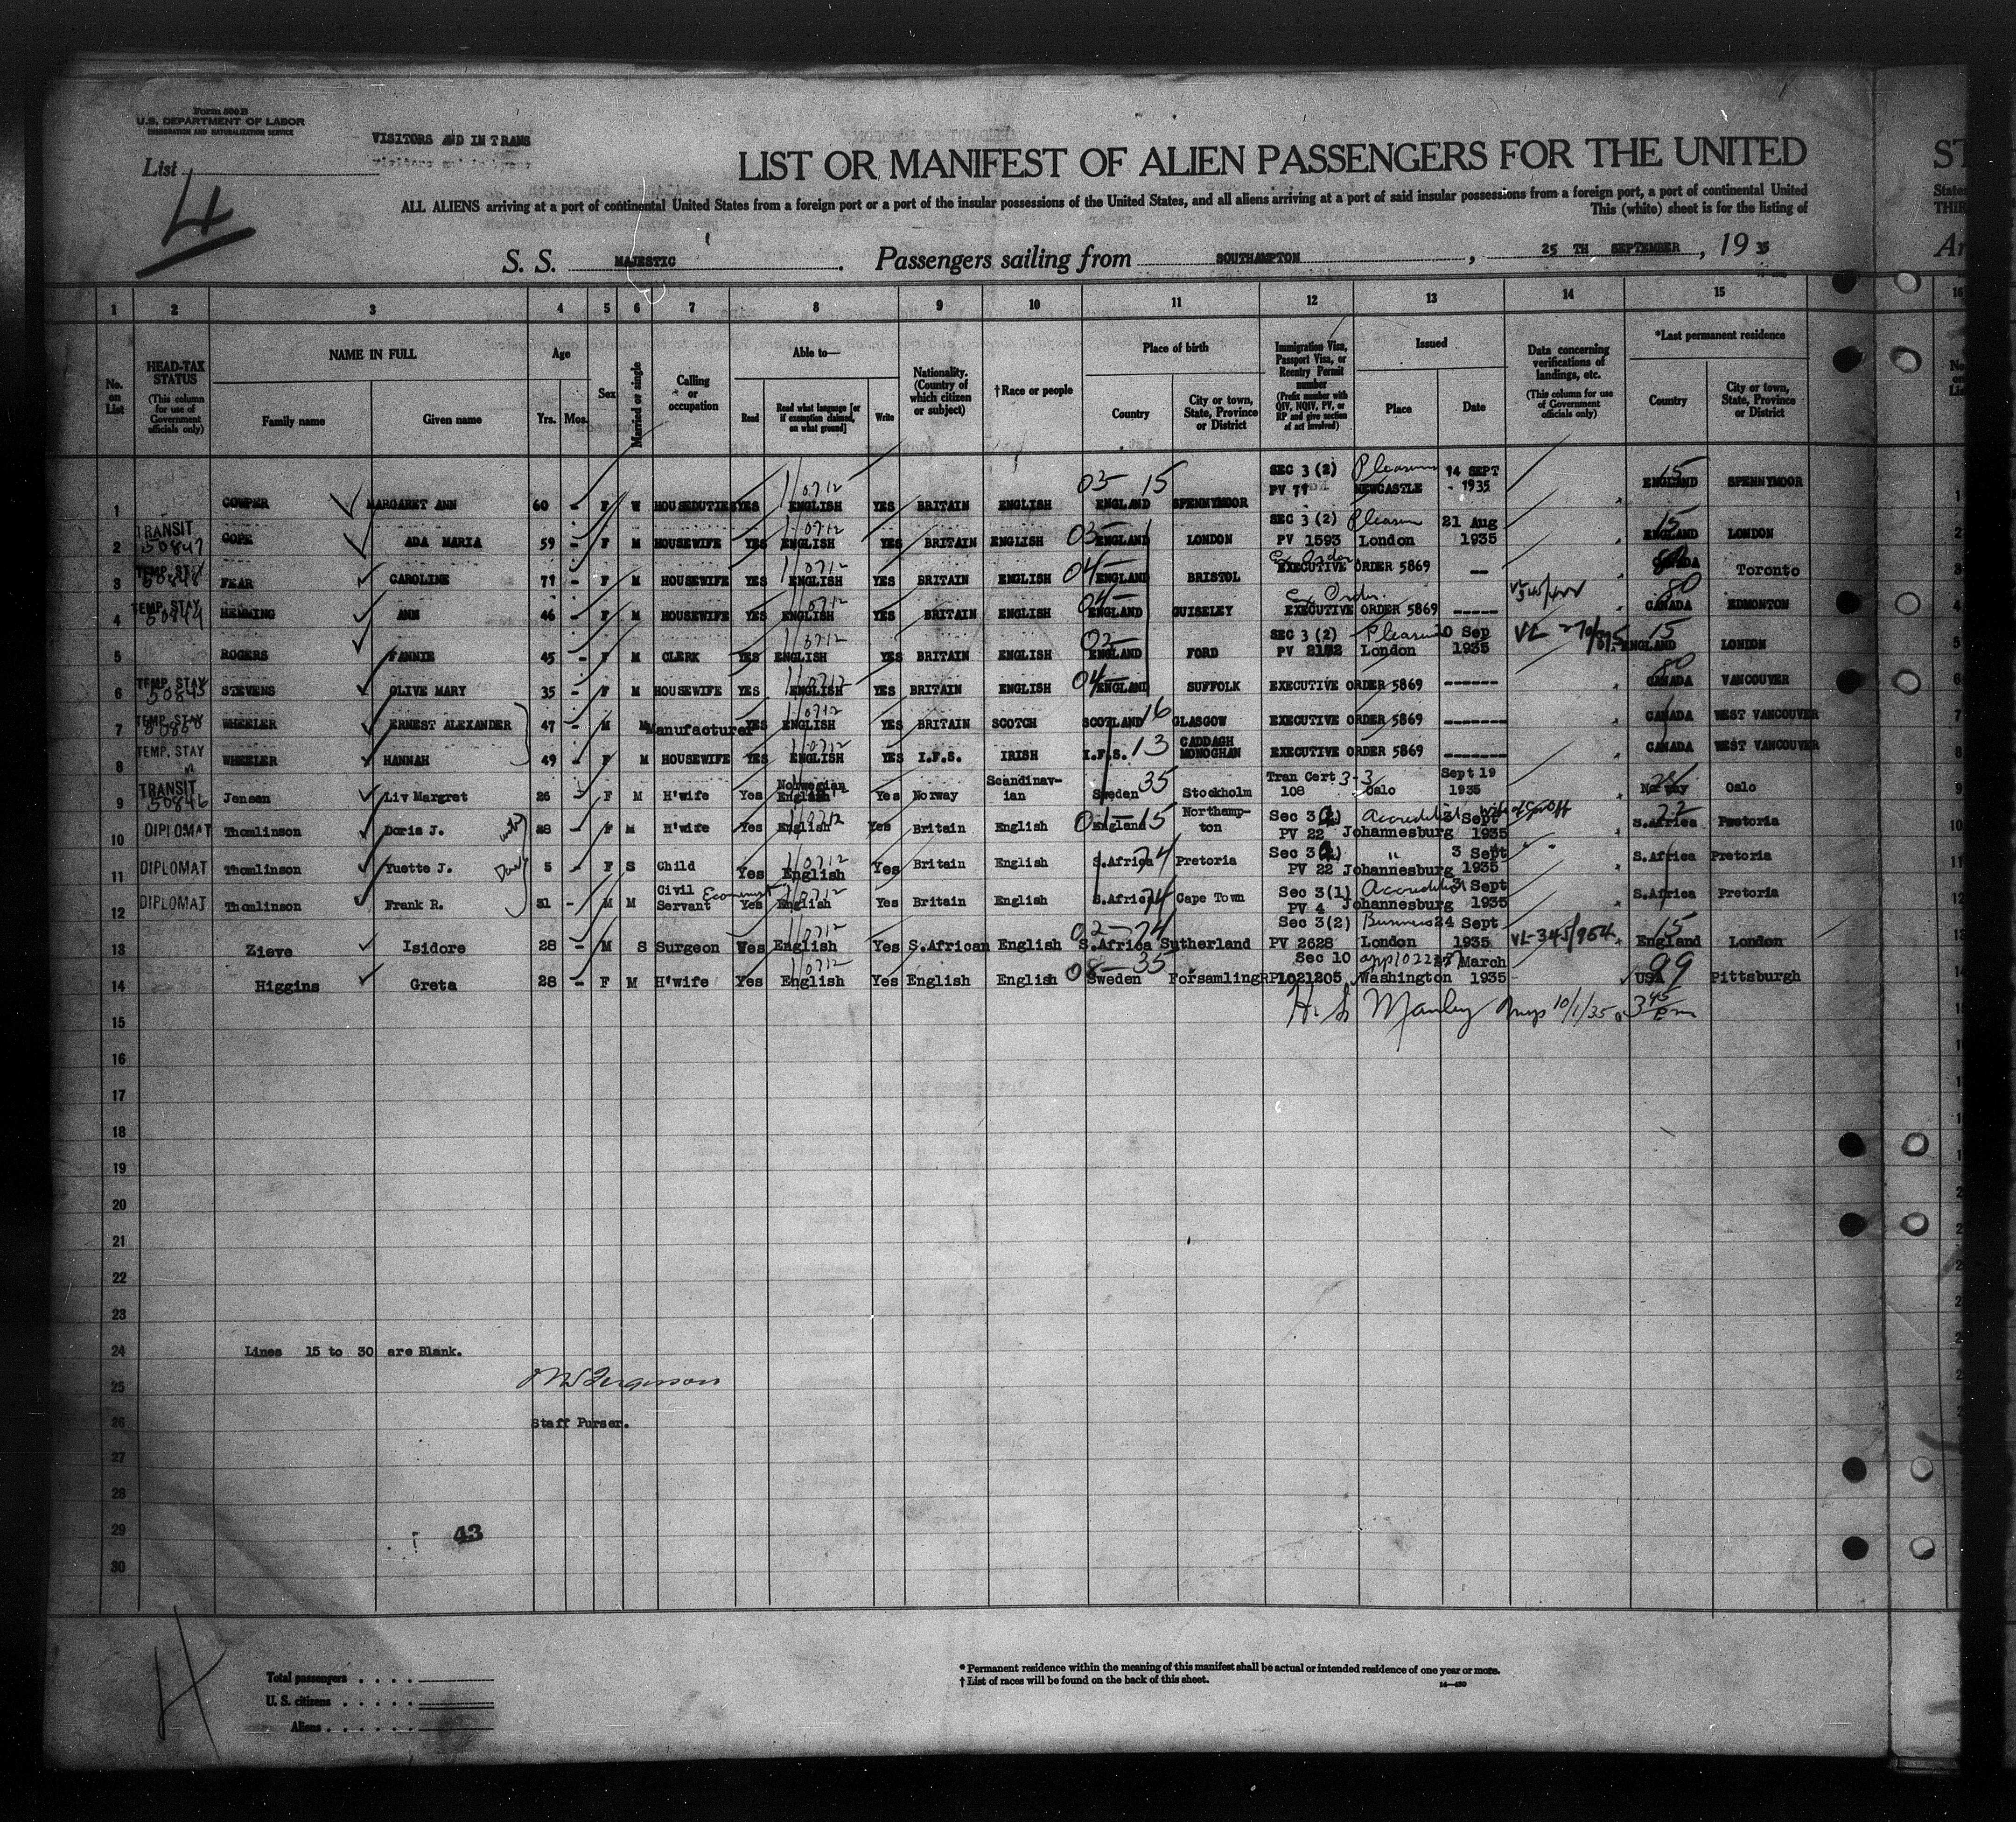 Form 500 B
U.S. DEPARTMENT OF LABOR
IMMIGRATION AND NATURALIZATION SERVICE
VISITORS AND IN TRANS
List
4
LIST OR MANIFEST OF ALIEN PASSENGERS FOR THE UNITED
ST
ALL ALIENS arriving at a port of continental United States from a foreign port or a port of the insular possessions of the United States, and all aliens arriving at a port of said insular possessions from a foreign port, a port of continental United
States
This (white) sheet is for the listing of
THIR
S. S. MAJESTIC . Passengers sailing from SOUTHAMPTON , 25 TH SEPTEMBER , 19 35
Ar
1 2 3 4 5 6 7 8 9 10 11 12 13 14 15 16
No. on List
HEAD-TAX STATUS (This column for use of Government officials only)
NAME IN FULL Family name Given name
Age Yrs. Mos.
Sex
Married or single
Calling or occupation
Able to— Read Read what language [or if exemption claimed, on what ground] Write
Nationality. (Country of which citizen or subject)
† Race or people
Place of birth Country City or town, State, Province or District
Immigration Visa, Passport Visa, or Reentry Permit number (Prefix number with QIV, NQIV, PV, or RP and give section of act involved)
Issued Place Date
Data concerning verifications of landings, etc. (This column for use of Government officials only)
*Last permanent residence Country City or town, State, Province or District
1 COWPER MARGARET ANN 60 - F W HOUSEDUTIES YES ENGLISH YES BRITAIN ENGLISH 03- ENGLAND 15 SPENNYMOOR SEC 3 (2) PV 71 Pleasure NEWCASTLE 14 SEPT - 1935 15 ENGLAND SPENNYMOOR
2 TRANSIT 50847 COPE ADA MARIA 59 - F M HOUSEWIFE YES ENGLISH YES BRITAIN ENGLISH 03- ENGLAND LONDON SEC 3 (2) PV 1593 Pleasure London 21 Aug 1935 15 ENGLAND LONDON
3 TEMP. STAY 50848 FEAR CAROLINE 71 - F M HOUSEWIFE YES ENGLISH YES BRITAIN ENGLISH 04- ENGLAND BRISTOL Ex Order EXECUTIVE ORDER 5869 — 80 CANADA Toronto
4 TEMP. STAY 50844 HEMMING ANN 46 - F M HOUSEWIFE YES ENGLISH YES BRITAIN ENGLISH 04- ENGLAND GUISELEY Ex Order. EXECUTIVE ORDER 5869 ----- 80 CANADA EDMONTON
5 ROGERS FANNIE 45 - F M CLERK YES ENGLISH YES BRITAIN ENGLISH 02- ENGLAND FORD SEC 3 (2) PV 2182 Pleasure London 10 Sep 1935 15 ENGLAND LONDON
6 TEMP. STAY 50845 STEVENS OLIVE MARY 35 - F M HOUSEWIFE YES ENGLISH YES BRITAIN ENGLISH 04- ENGLAND SUFFOLK EXECUTIVE ORDER 5869 ------ 80 CANADA VANCOUVER
7 TEMP. STAY 50850 WHEELER ERNEST ALEXANDER 47 - M M Manufacturer YES ENGLISH YES BRITAIN SCOTCH SCOTLAND 16 GLASGOW EXECUTIVE ORDER 5869 ------- CANADA WEST VANCOUVER
8 TEMP. STAY WHEELER HANNAH 49 - F M HOUSEWIFE YES ENGLISH YES I.F.S. IRISH I.F.S. 13 CADDAGH MONOGHAN EXECUTIVE ORDER 5869 ------- CANADA WEST VANCOUVER
9 TRANSIT 50846 Jensen Liv Margret 26 - F M H'wife Yes Norwegian English Yes Norway Scandinavian Sweden 35 Stockholm Tran Cert 3-3 108 Oslo Sept 19 1935 Norway Oslo
10 DIPLOMAT Thomlinson Doris J. 28 - F M H'wife Yes English Yes Britain English England 15 Northampton Sec 3(1) PV 22 Accredited Johannesburg 3 Sept 1935 S.Africa Pretoria
11 DIPLOMAT Thomlinson Yuette J. 5 - F S Child Yes English Yes Britain English S.Africa 74 Pretoria Sec 3(1) PV 22 " Johannesburg 3 Sept 1935 S.Africa Pretoria
12 DIPLOMAT Thomlinson Frank R. 31 - M M Civil Servant Economist Yes English Yes Britain English S.Africa 74 Cape Town Sec 3(1) PV 4 Accredited Johannesburg 3 Sept 1935 S.Africa Pretoria
13 Zieve Isidore 28 - M S Surgeon Wes English Yes S.African English 02-74 S.Africa Sutherland Sec 3(2) PV 2628 Business London 24 Sept 1935 VL-345/954 15 England London
14 Higgins Greta 28 - F M H'wife Yes English Yes English English 08-35 Sweden Forsamling Sec 10 RP1021205 Washington 27 March 1935 99 USA Pittsburgh
15 10/1/35 3 45 pm
16
17
18
19
20
21
22
23
24 Lines 15 to 30 are Blank.
25
26 Staff Purser.
27
28
29 43
30
Total passengers . . . .
U. S. citizens . . . . .
Aliens . . . . . .
* Permanent residence within the meaning of this manifest shall be actual or intended residence of one year or more.
† List of races will be found on the back of this sheet.